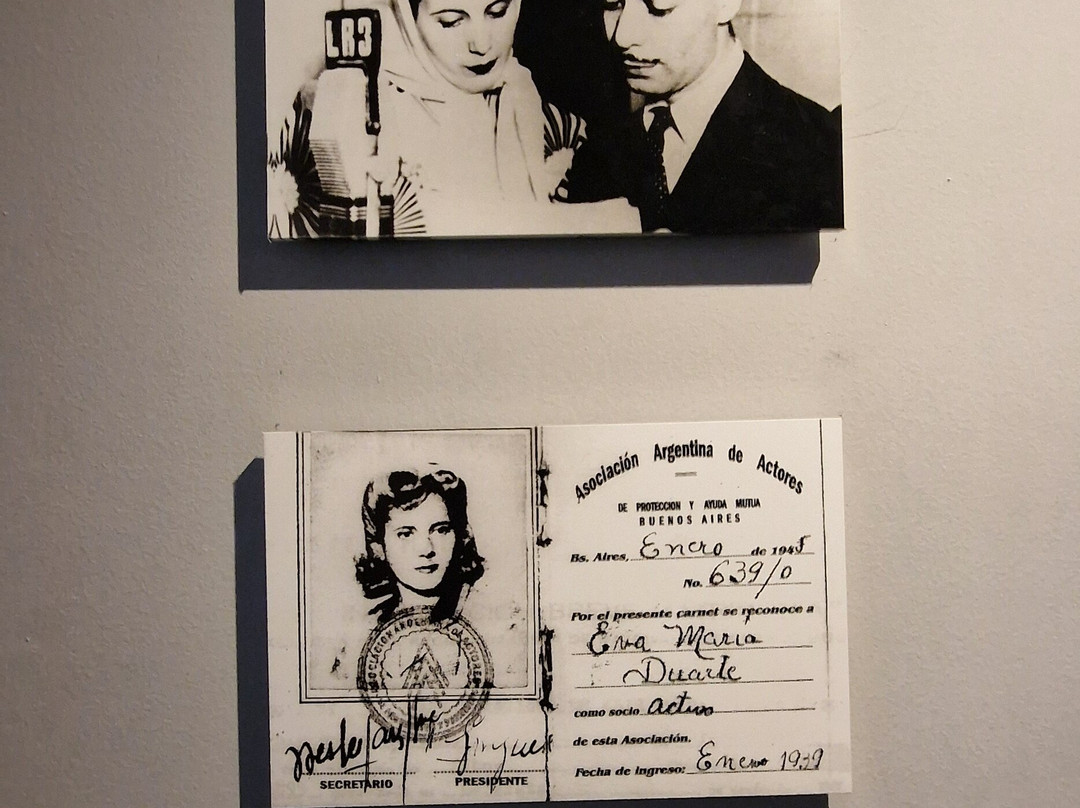 LR3
Asociación Argentina de Actores
DE PROTECCION Y AYUDA MUTUA
BUENOS AIRES
Bs. Aires, Enero de 1945
No. 639/0
Por el presente carnet se reconoce a
Eva Maria
Duarte
como socio activo
de esta Asociación.
Fecha de ingreso: Enero 1939
SECRETARIO PRESIDENTE